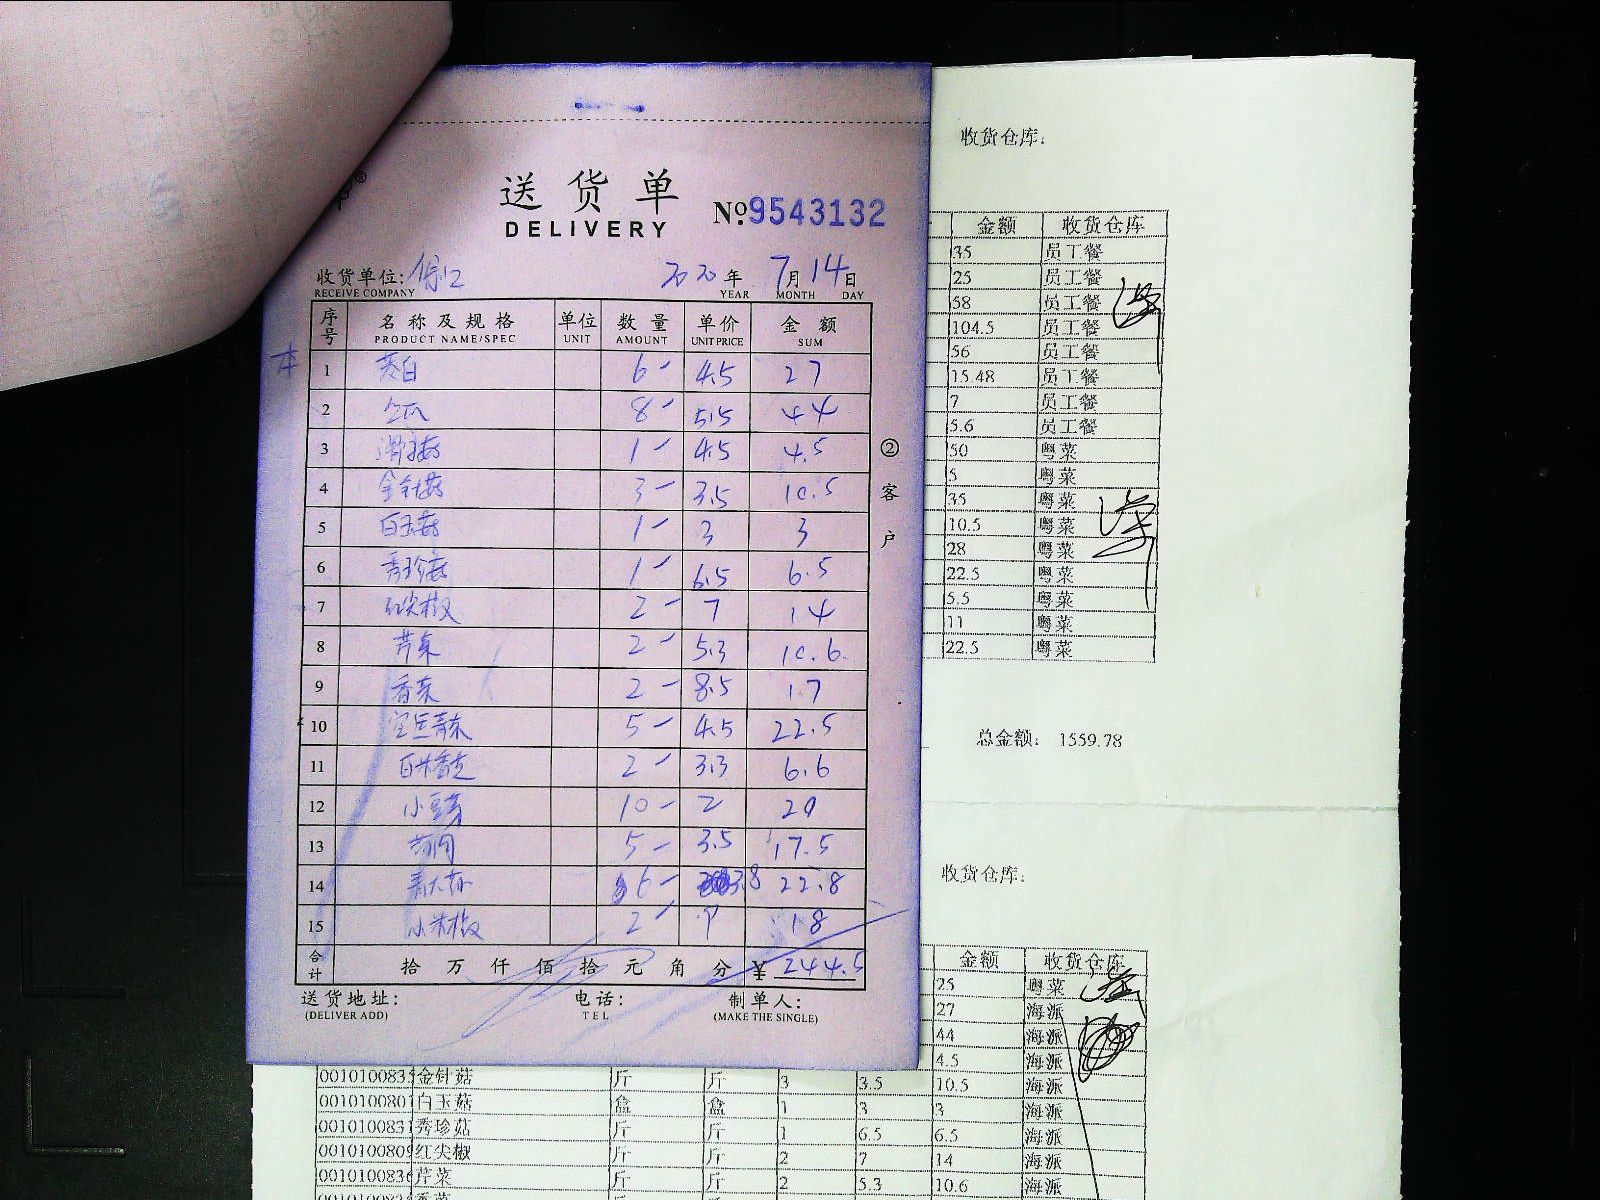 送货单
DELIVERY
№9543132
收货单位:
RECEIVE COMPANY
2020年 7月14日
YEAR MONTH DAY
序号 名称及规格 单位 数量 单价 金额
PRODUCT NAME/SPEC UNIT AMOUNT UNIT PRICE SUM
本
1 茭白 6 4.5 27
2 8 5.5 44
3 滑子菇 1 4.5 4.5
4 金针菇 3 3.5 10.5
5 白玉菇 1 3 3
6 秀珍菇 1 6.5 6.5
7 红尖椒 2 7 14
8 芹菜 2 5.3 10.6
9 香菜 2 8.5 17
10 5 4.5 22.5
11 2 3.3 6.6
12 小豆芽 10 2 20
13 5 3.5 17.5
14 6 3.8 22.8
15 小米椒 2 9 18
合计 拾万仟佰拾元角分 ¥244.5
送货地址: 电话: 制单人:
(DELIVER ADD) TEL (MAKE THE SINGLE)
②客户
收货仓库:
金额 收货仓库
35 员工餐
25 员工餐
58 员工餐
104.5 员工餐
56 员工餐
15.48 员工餐
7 员工餐
5.6 员工餐
50 粤菜
5 粤菜
35 粤菜
10.5 粤菜
28 粤菜
22.5 粤菜
5.5 粤菜
11 粤菜
22.5 粤菜
总金额: 1559.78
收货仓库:
金额 收货仓库
25 粤菜
27 海派
44 海派
4.5 海派
0010100835 金针菇 斤 斤 3 3.5 10.5 海派
0010100801 白玉菇 盒 盒 1 3 3 海派
0010100831 秀珍菇 斤 斤 1 6.5 6.5 海派
0010100809 红尖椒 斤 斤 2 7 14 海派
0010100836 芹菜 斤 斤 2 5.3 10.6 海派